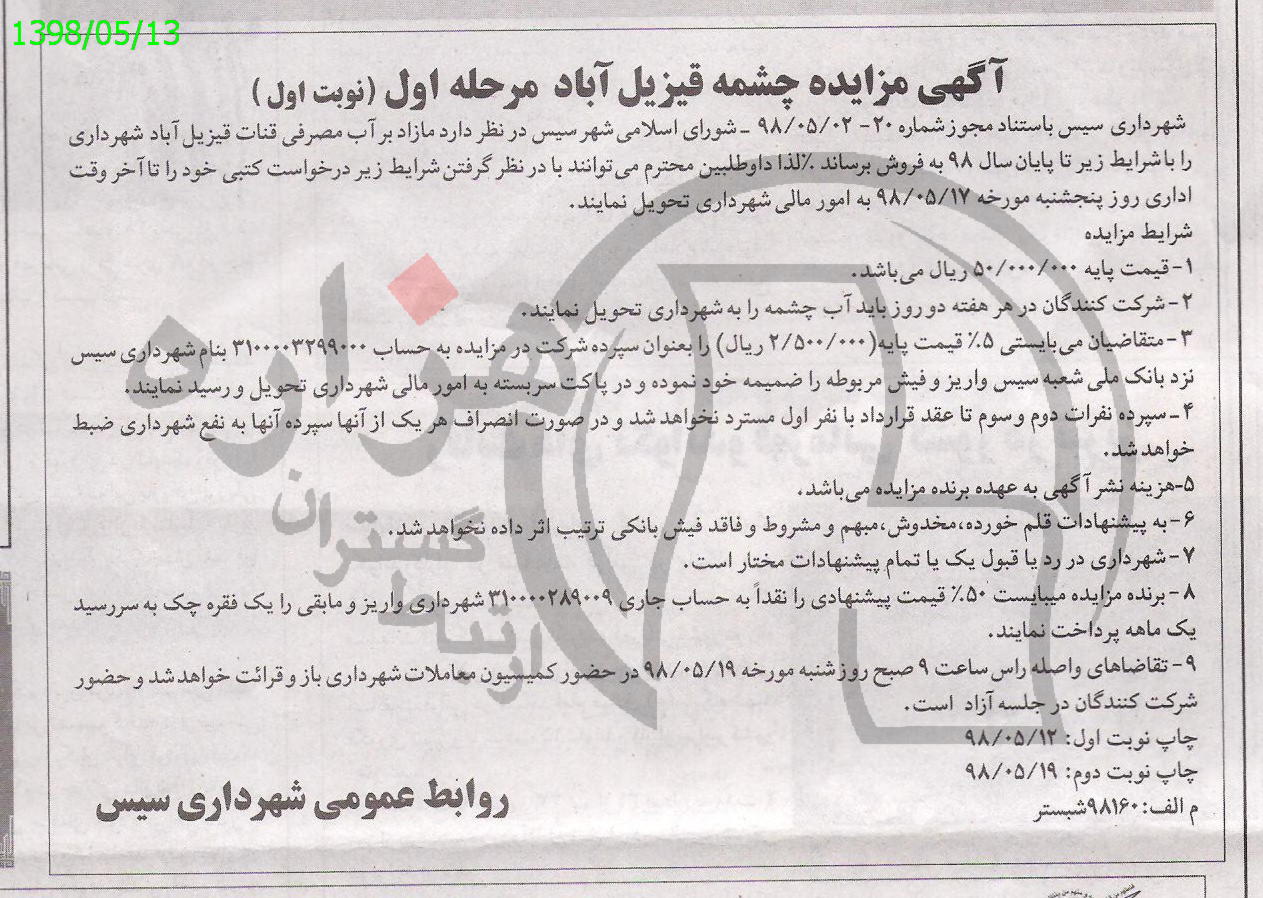 1398/05/13
آگهی مزایده چشمه قیزیل آباد مرحله اول (نوبت اول)
شهرداری سیس باستناد مجوز شماره ۲۰- ۹۸/۰۵/۰۲ ـ شورای اسلامی شهر سیس در نظر دارد مازاد بر آب مصرفی قنات قیزیل آباد شهرداری
را با شرایط زیر تا پایان سال ۹۸ به فروش برساند ٪لذا داوطلبین محترم می‌توانند با در نظر گرفتن شرایط زیر درخواست کتبی خود را تا آخر وقت
اداری روز پنجشنبه مورخه ۹۸/۰۵/۱۷ به امور مالی شهرداری تحویل نمایند.
شرایط مزایده
۱-قیمت پایه ۵۰/۰۰۰/۰۰۰ ریال می‌باشد.
۲-شرکت کنندگان در هر هفته دو روز باید آب چشمه را به شهرداری تحویل نمایند.
۳-متقاضیان می‌بایستی ۵٪ قیمت پایه(۲/۵۰۰/۰۰۰ ریال) را بعنوان سپرده شرکت در مزایده به حساب ۳۱۰۰۰۰۳۲۹۹۰۰۰ بنام شهرداری سیس
نزد بانک ملی شعبه سیس واریز و فیش مربوطه را ضمیمه خود نموده و در پاکت سربسته به امور مالی شهرداری تحویل و رسید نمایند.
۴ـ سپرده نفرات دوم و سوم تا عقد قرارداد با نفر اول مسترد نخواهد شد و در صورت انصراف هر یک از آنها سپرده آنها به نفع شهرداری ضبط
خواهد شد.
۵-هزینه نشر آگهی به عهده برنده مزایده می‌باشد.
۶-به پیشنهادات قلم خورده،مخدوش،مبهم و مشروط و فاقد فیش بانکی ترتیب اثر داده نخواهد شد.
۷-شهرداری در رد یا قبول یک یا تمام پیشنهادات مختار است.
۸-برنده مزایده میبایست ۵۰٪ قیمت پیشنهادی را نقداً به حساب جاری ۳۱۰۰۰۰۲۸۹۰۰۹ شهرداری واریز و مابقی را یک فقره چک به سررسید
یک ماهه پرداخت نمایند.
۹-تقاضاهای واصله راس ساعت ۹ صبح روز شنبه مورخه ۹۸/۰۵/۱۹ در حضور کمیسیون معاملات شهرداری باز و قرائت خواهد شد و حضور
شرکت کنندگان در جلسه آزاد است.
چاپ نوبت اول: ۹۸/۰۵/۱۲
چاپ نوبت دوم: ۹۸/۰۵/۱۹
م الف: ۹۸۱۶۰شبستر
روابط عمومی شهرداری سیس
هزاره
گستران
ارتباط